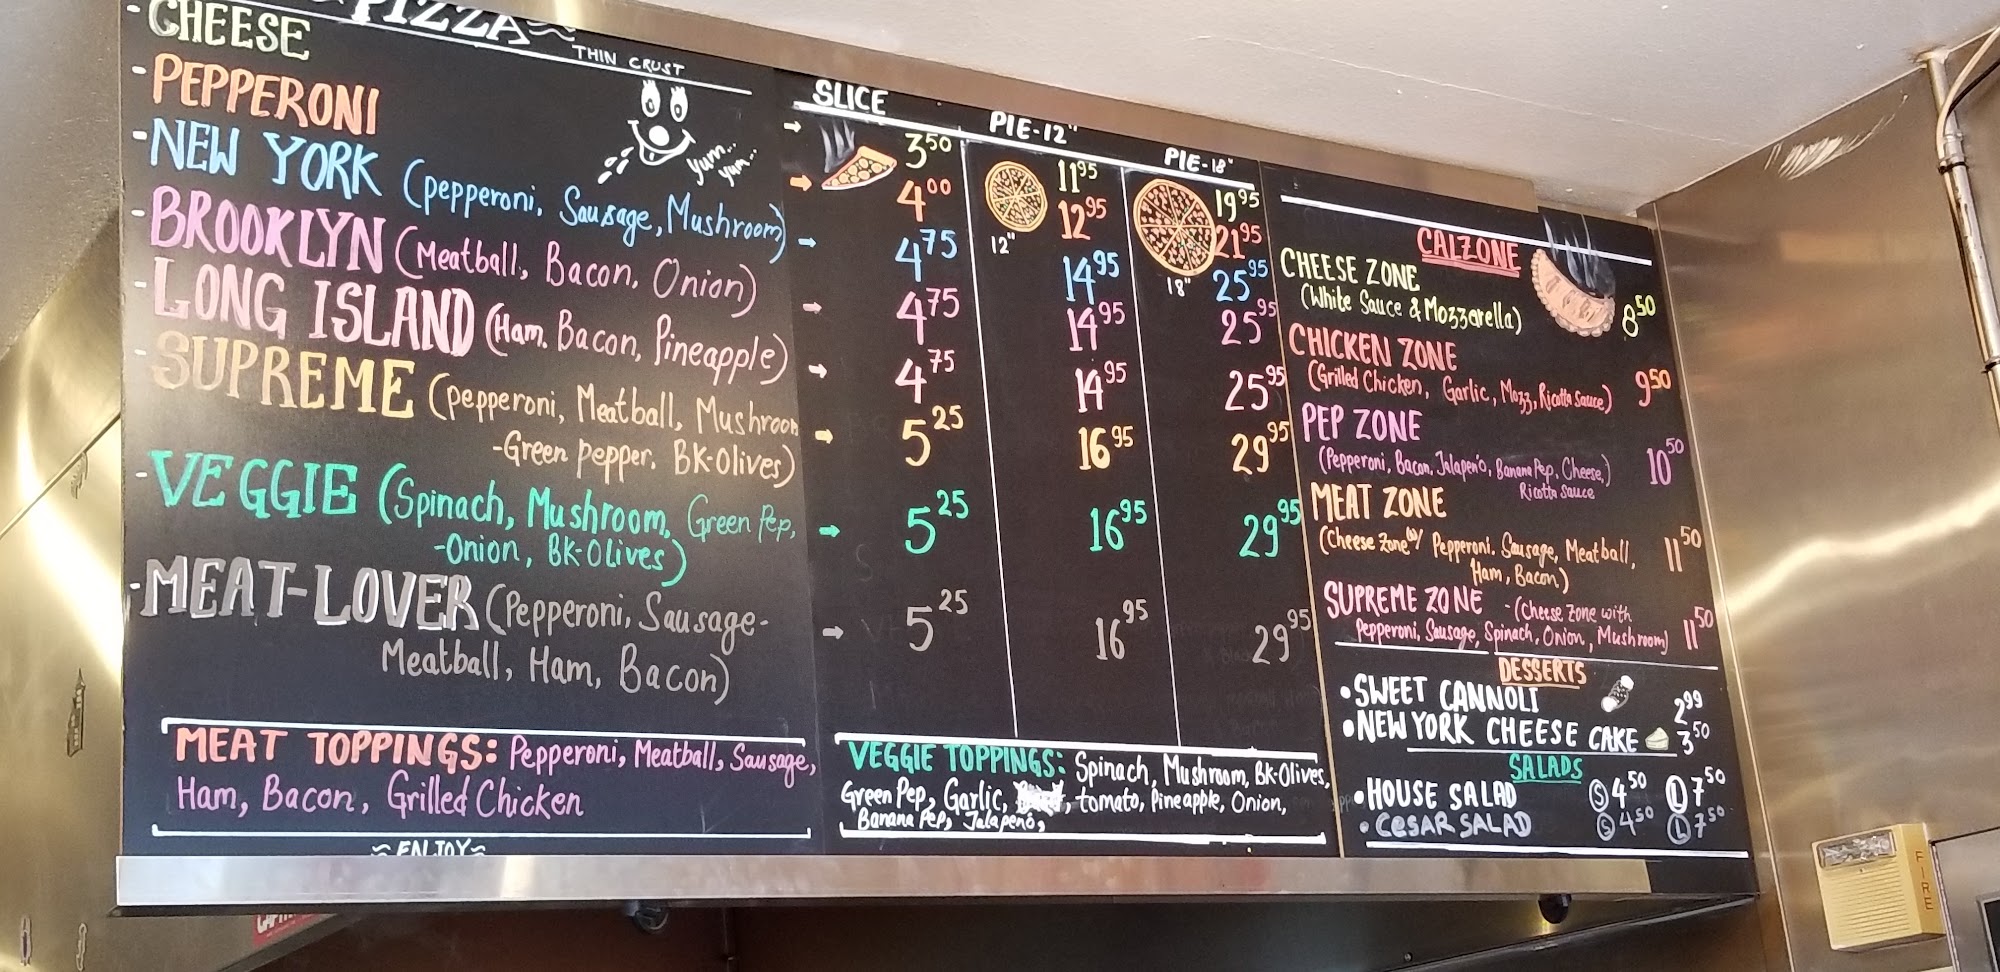 PIZZA
THIN CRUST
- CHEESE
- PEPPERONI
- NEW YORK (pepperoni, Sausage, Mushroom)
- BROOKLYN (Meatball, Bacon, Onion)
- LONG ISLAND (Ham, Bacon, Pineapple)
- SUPREME (pepperoni, Meatball, Mushroom
-Green pepper, BK-Olives)
- VEGGIE (Spinach, Mushroom, Green Pep,
-Onion, BK-Olives)
- MEAT-LOVER (Pepperoni, Sausage-
Meatball, Ham, Bacon)
Yum...
yum...
MEAT TOPPINGS: Pepperoni, Meatball, Sausage,
Ham, Bacon, Grilled Chicken
~ENJOY~
SLICE
3 50
4 00
4 75
4 75
4 75
5 25
5 25
5 25
PIE-12"
12"
11 95
12 95
14 95
14 95
14 95
16 95
16 95
16 95
PIE-18"
18"
19 95
21 95
25 95
25 95
25 95
29 95
29 95
29 95
VEGGIE TOPPINGS: Spinach, Mushroom, BK-Olives,
Green Pep, Garlic, tomato, Pineapple, Onion,
Banana Pep, Jalapenó,
CALZONE
CHEESE ZONE
(White Sauce & Mozzarella) 8 50
CHICKEN ZONE
(Grilled Chicken, Garlic, Mozz, Ricotta Sauce) 9 50
PEP ZONE
(Pepperoni, Bacon, Jalapenó, Banana Pep, Cheese,) 10 50
Ricotta Sauce
MEAT ZONE
(Cheese Zone w/ Pepperoni, Sausage, Meatball, 11 50
Ham, Bacon)
SUPREME ZONE - (Cheese Zone with
Pepperoni, Sausage, Spinach, Onion, Mushroom) 11 50
DESSERTS
• SWEET CANNOLI 2 99
• NEW YORK CHEESE CAKE 3 50
SALADS
• HOUSE SALAD S 4 50 L 7 50
• CESAR SALAD S 4 50 L 7 50
FIRE